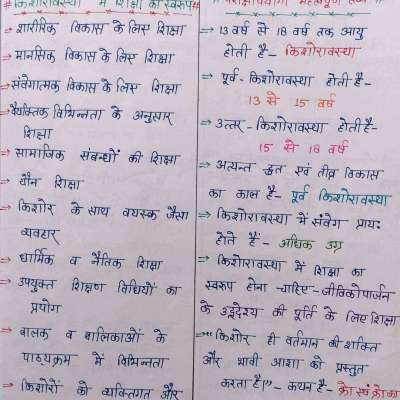 किशोरावस्था में शिक्षा का स्वरूप
⇒ शारीरिक विकास के लिए शिक्षा
⇒ मानसिक विकास के लिए शिक्षा
⇒ संवेगात्मक विकास के लिए शिक्षा
⇒ वैयक्तिक विभिन्नता के अनुसार
शिक्षा
⇒ सामाजिक संबन्धों की शिक्षा
⇒ यौन शिक्षा
⇒ किशोर के साथ वयस्क जैसा
व्यवहार
⇒ धार्मिक व नैतिक शिक्षा
⇒ उपयुक्त शिक्षण विधियों का
प्रयोग
⇒ बालक व बालिकाओं के
पाठ्यक्रम में विभिन्नता
⇒ किशोरों को व्यक्तिगत और
⇒ 13 वर्ष से 18 वर्ष तक आयु
होती है - किशोरावस्था
⇒ पूर्व - किशोरावस्था होती है -
13 से 15 वर्ष
⇒ उत्तर - किशोरावस्था होती है -
15 से 18 वर्ष
⇒ अत्यन्त द्रुत एवं तीव्र विकास
का काल है - पूर्व किशोरावस्था
⇒ किशोरावस्था में संवेग प्रायः
होते हैं - अधिक उग्र
⇒ किशोरावस्था में शिक्षा का
स्वरूप होना चाहिए - जीविकोपार्जन
के उद्देश्य की पूर्ति के लिए शिक्षा
⇒ "किशोर ही वर्तमान की शक्ति
और भावी आशा को प्रस्तुत
करता है।" - कथन है - क्रो एवं क्रो का